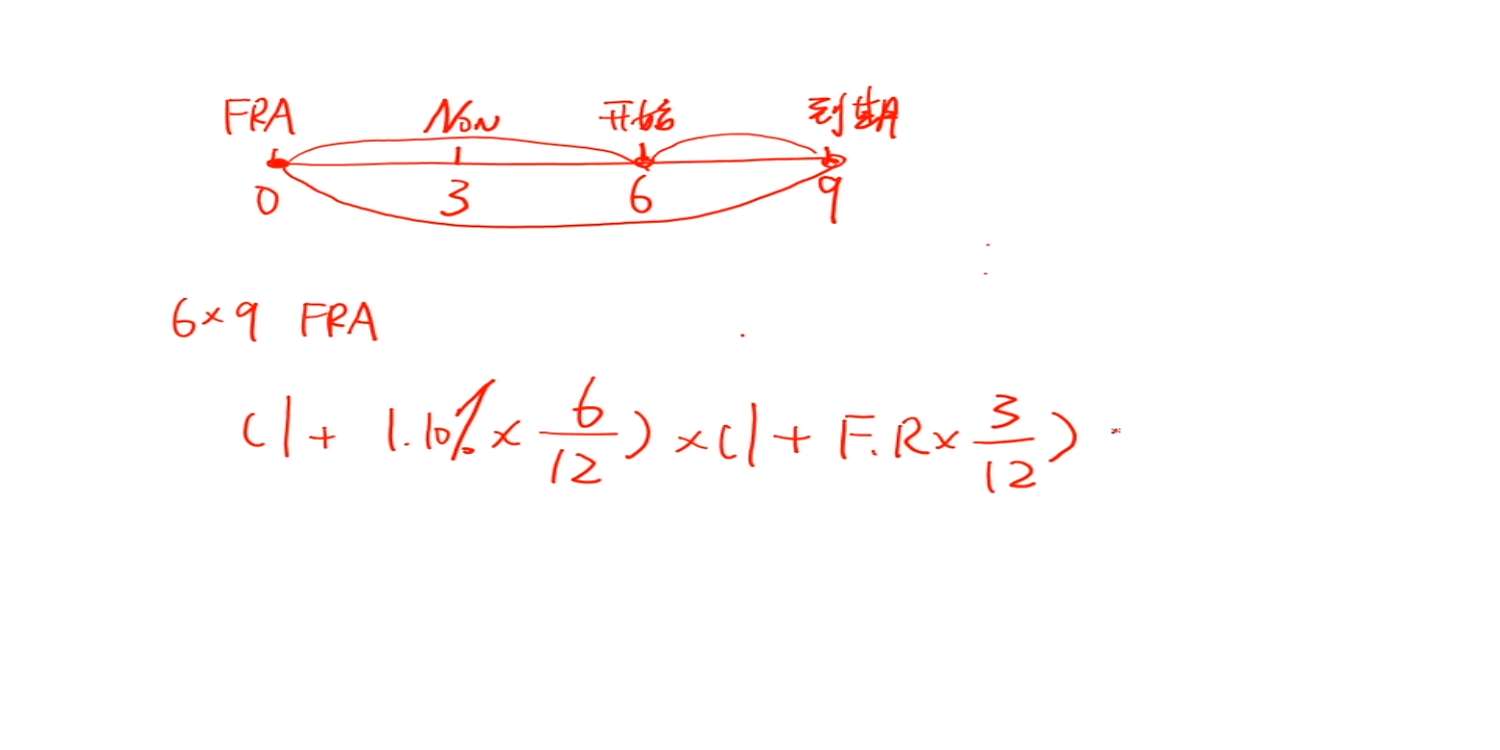 FRA Non 开始 到期
0 3 6 9
6×9 FRA
(1+ 1.10%×6/12)×(1+ F.R×3/12)